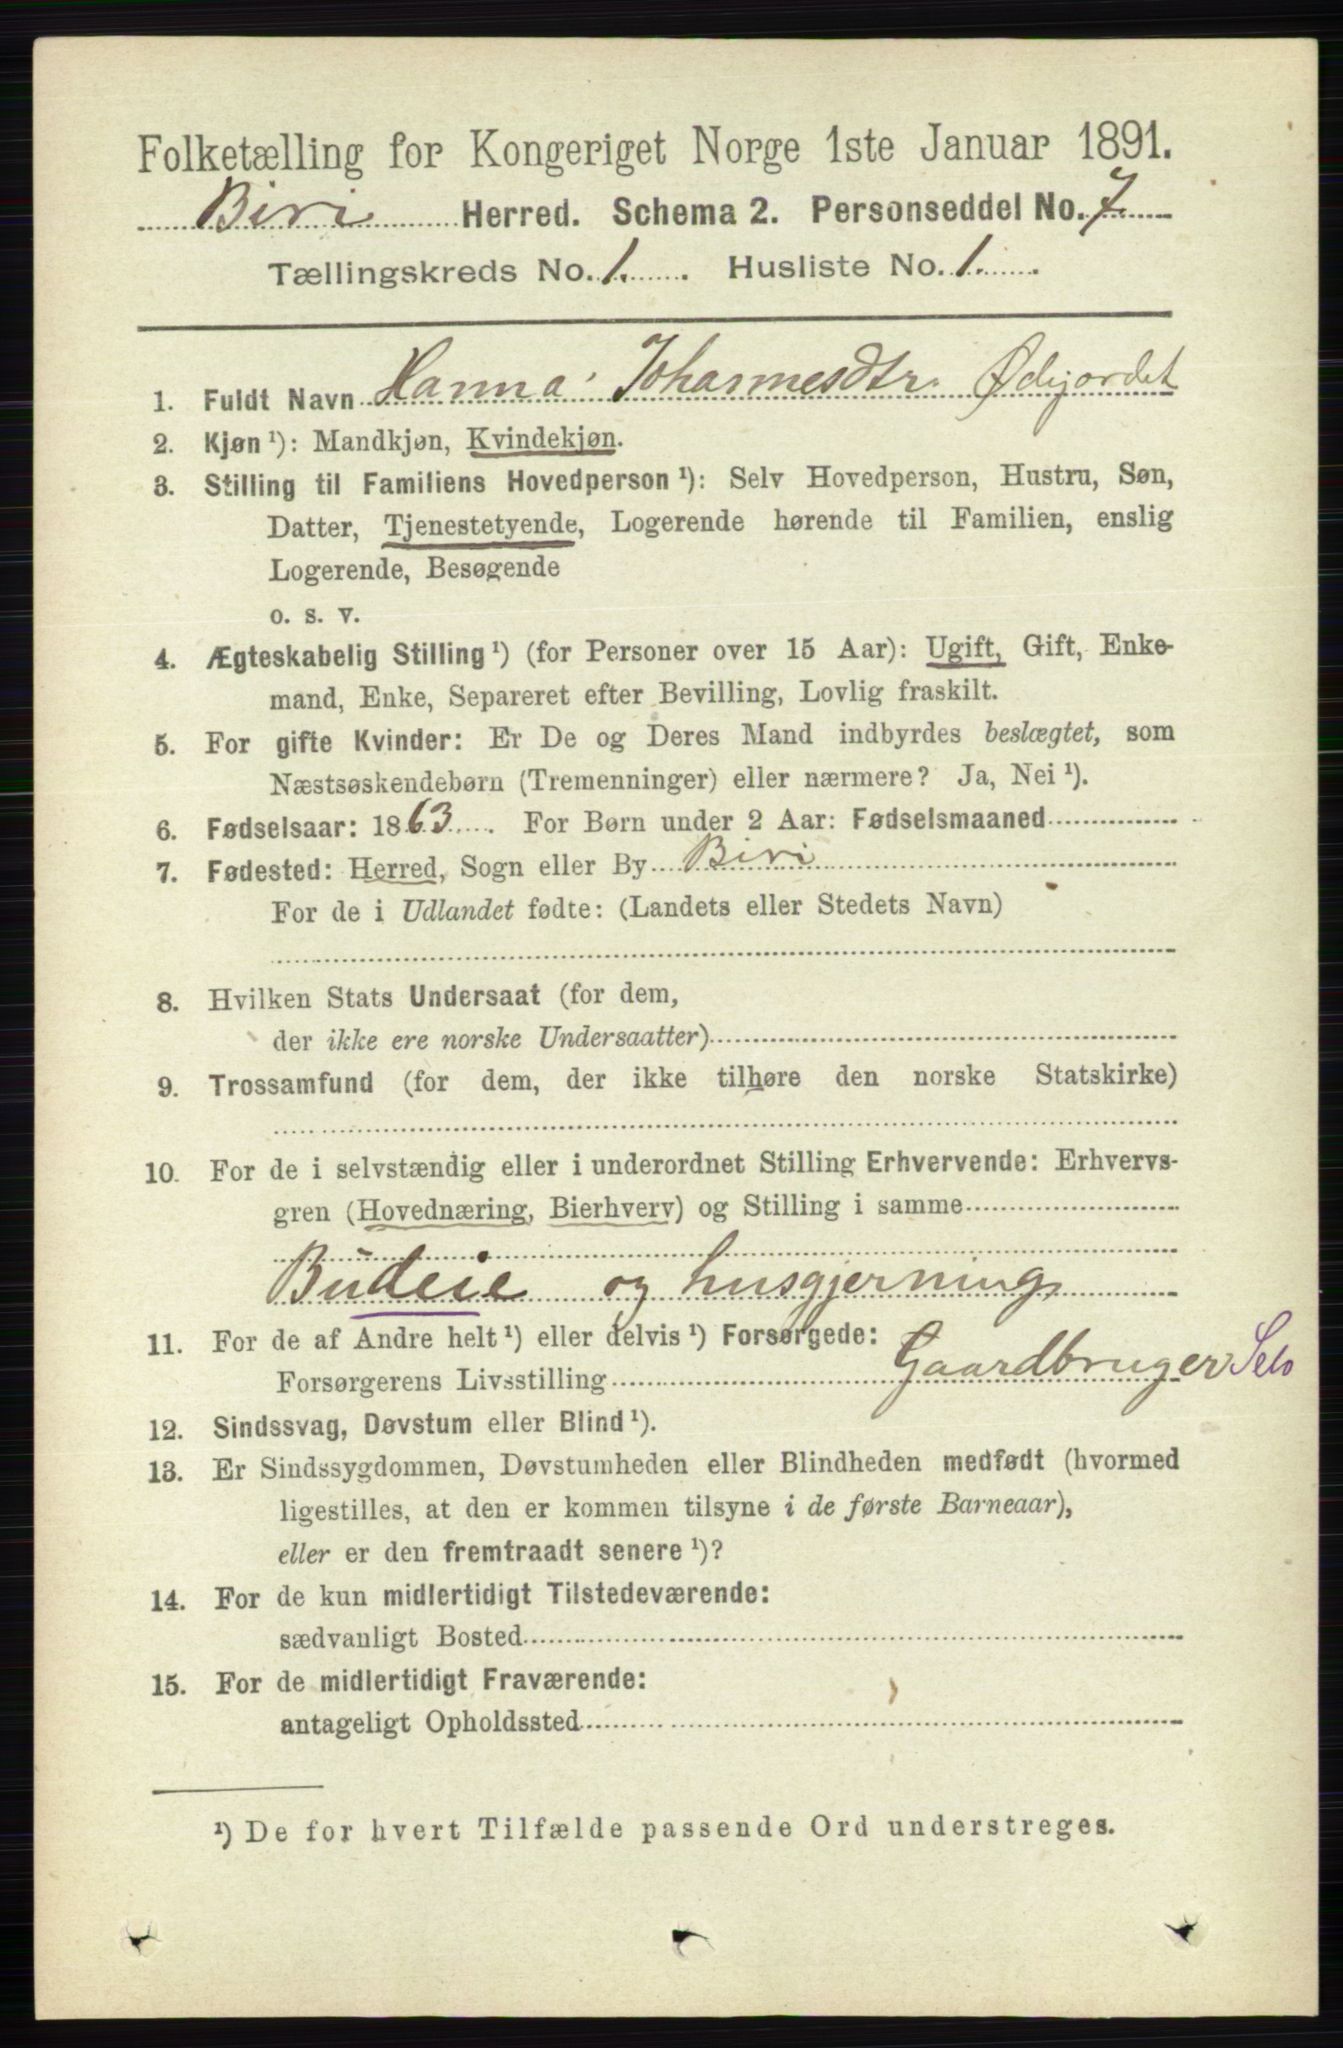 Folketælling for Kongeriget Norge 1ste Januar 1891.
Biri Herred. Schema 2. Personseddel No. 7
Tællingskreds No. 1. Husliste No. 1.
1. Fuldt Navn Hanna Johannesdtr. Ødejordet
2. Kjøn¹): Mandkjøn, Kvindekjøn.
3. Stilling til Familiens Hovedperson¹): Selv Hovedperson, Hustru, Søn,
Datter, Tjenestetyende, Logerende hørende til Familien, enslig
Logerende, Besøgende
o. s. v.
4. Ægteskabelig Stilling¹) (for Personer over 15 Aar): Ugift, Gift, Enke-
mand, Enke, Separeret efter Bevilling, Lovlig fraskilt.
5. For gifte Kvinder: Er De og Deres Mand indbyrdes beslægtet, som
Næstsøskendebørn (Tremenninger) eller nærmere? Ja, Nei¹).
6. Fødselsaar: 1863. For Børn under 2 Aar: Fødselsmaaned
7. Fødested: Herred, Sogn eller By Biri
For de i Udlandet fødte: (Landets eller Stedets Navn)
8. Hvilken Stats Undersaat (for dem,
der ikke ere norske Undersaatter)
9. Trossamfund (for dem, der ikke tilhøre den norske Statskirke)
10. For de i selvstændig eller i underordnet Stilling Erhvervende: Erhvervs-
gren (Hovednæring, Bierhverv) og Stilling i samme
Budeie og husgjerning
11. For de af Andre helt¹) eller delvis¹) Forsørgede:
Forsørgerens Livsstilling Gaardbruger Selv
12. Sindssvag, Døvstum eller Blind¹).
13. Er Sindssygdommen, Døvstumheden eller Blindheden medfødt (hvormed
ligestilles, at den er kommen tilsyne i de første Barneaar),
eller er den fremtraadt senere¹)?
14. For de kun midlertidigt Tilstedeværende:
sædvanligt Bosted
15. For de midlertidigt Fraværende:
antageligt Opholdssted
¹) De for hvert Tilfælde passende Ord understreges.